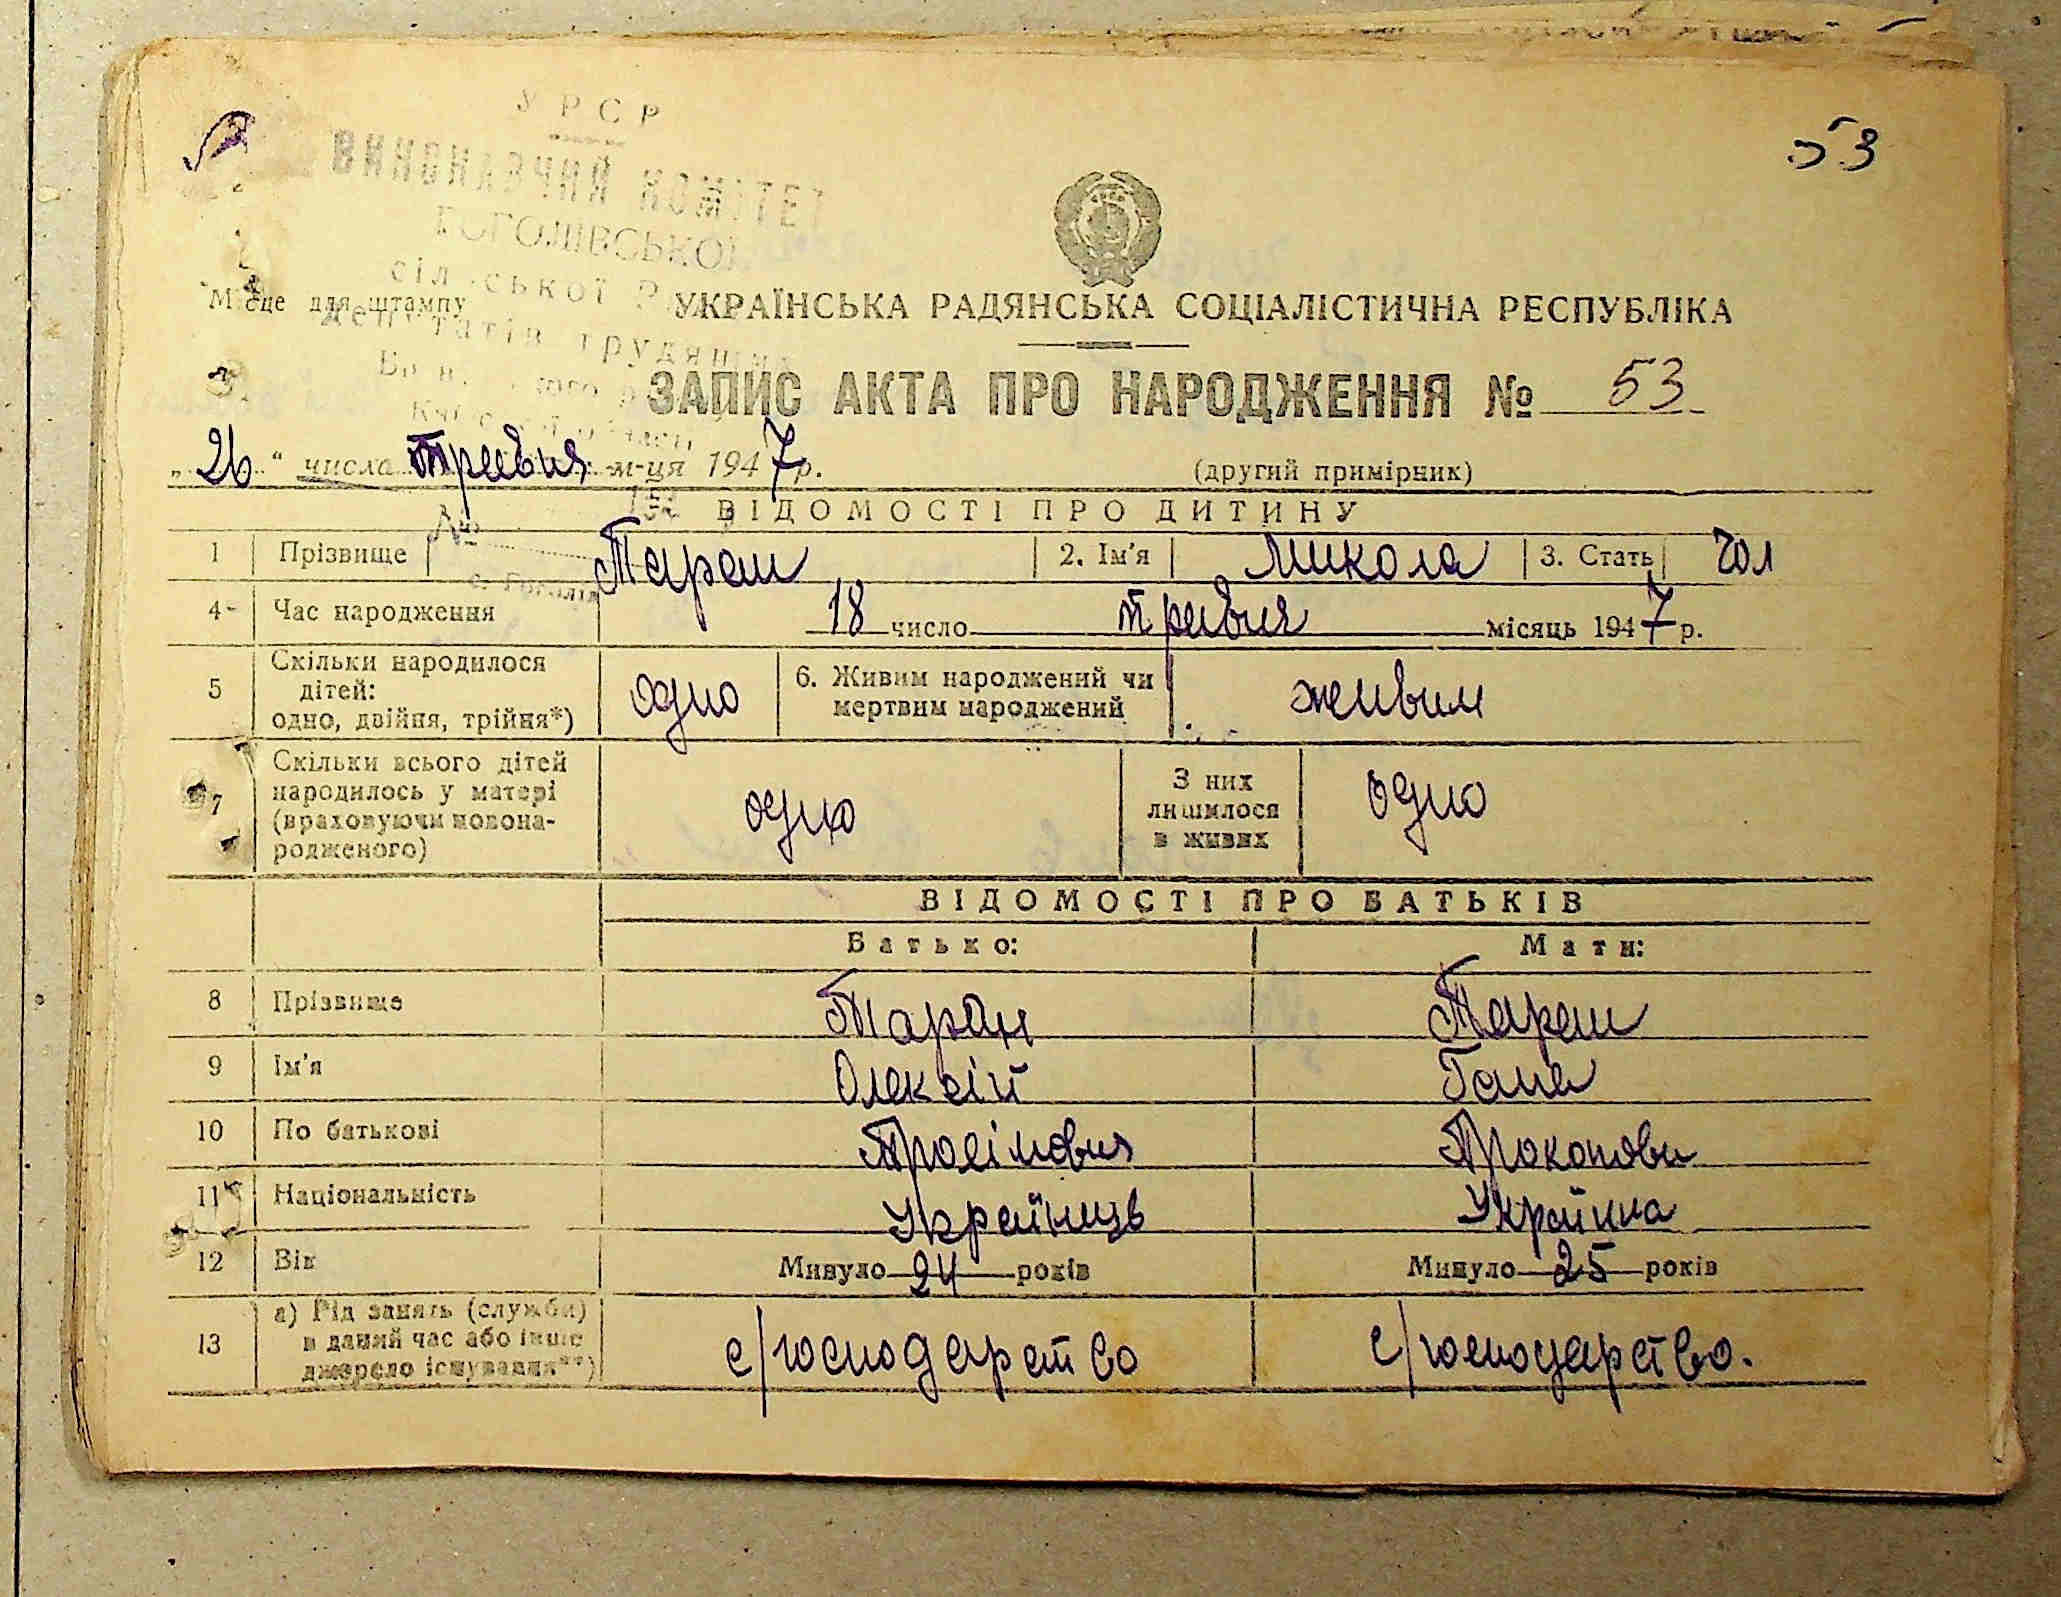 53
УРСР
ВИКОНАВЧИЙ КОМІТЕТ
ГОГОЛІВСЬКОЇ
сільської
депутатів трудящих
Місце для штампу
УКРАЇНСЬКА РАДЯНСЬКА СОЦІАЛІСТИЧНА РЕСПУБЛІКА
ЗАПИС АКТА ПРО НАРОДЖЕННЯ № 53
„26“ числа тревня м-ця 1947 р.
(другий примірник)
ВІДОМОСТІ ПРО ДИТИНУ
1 Прізвище Таран 2. Ім'я Микола 3. Стать чол
4 Час народження 18 число тревня місяць 1947 р.
5 Скільки народилося дітей: одно, двійня, трійня*) одно 6. Живим народжений чи мертвим народжений живим
7 Скільки всього дітей народилось у матері (враховуючи новонародженого) одно З них лишилося в живих одно
ВІДОМОСТІ ПРО БАТЬКІВ
Батько: Мати:
8 Прізвище Таран Таран
9 Ім'я Олексій Гана
10 По батькові Прокопови
11 Національність Українець Українка
12 Вік Минуло 24 років Минуло 25 років
13 а) Рід занять (служби) в даний час або інше джерело існування**) с/господарство с/господарство.